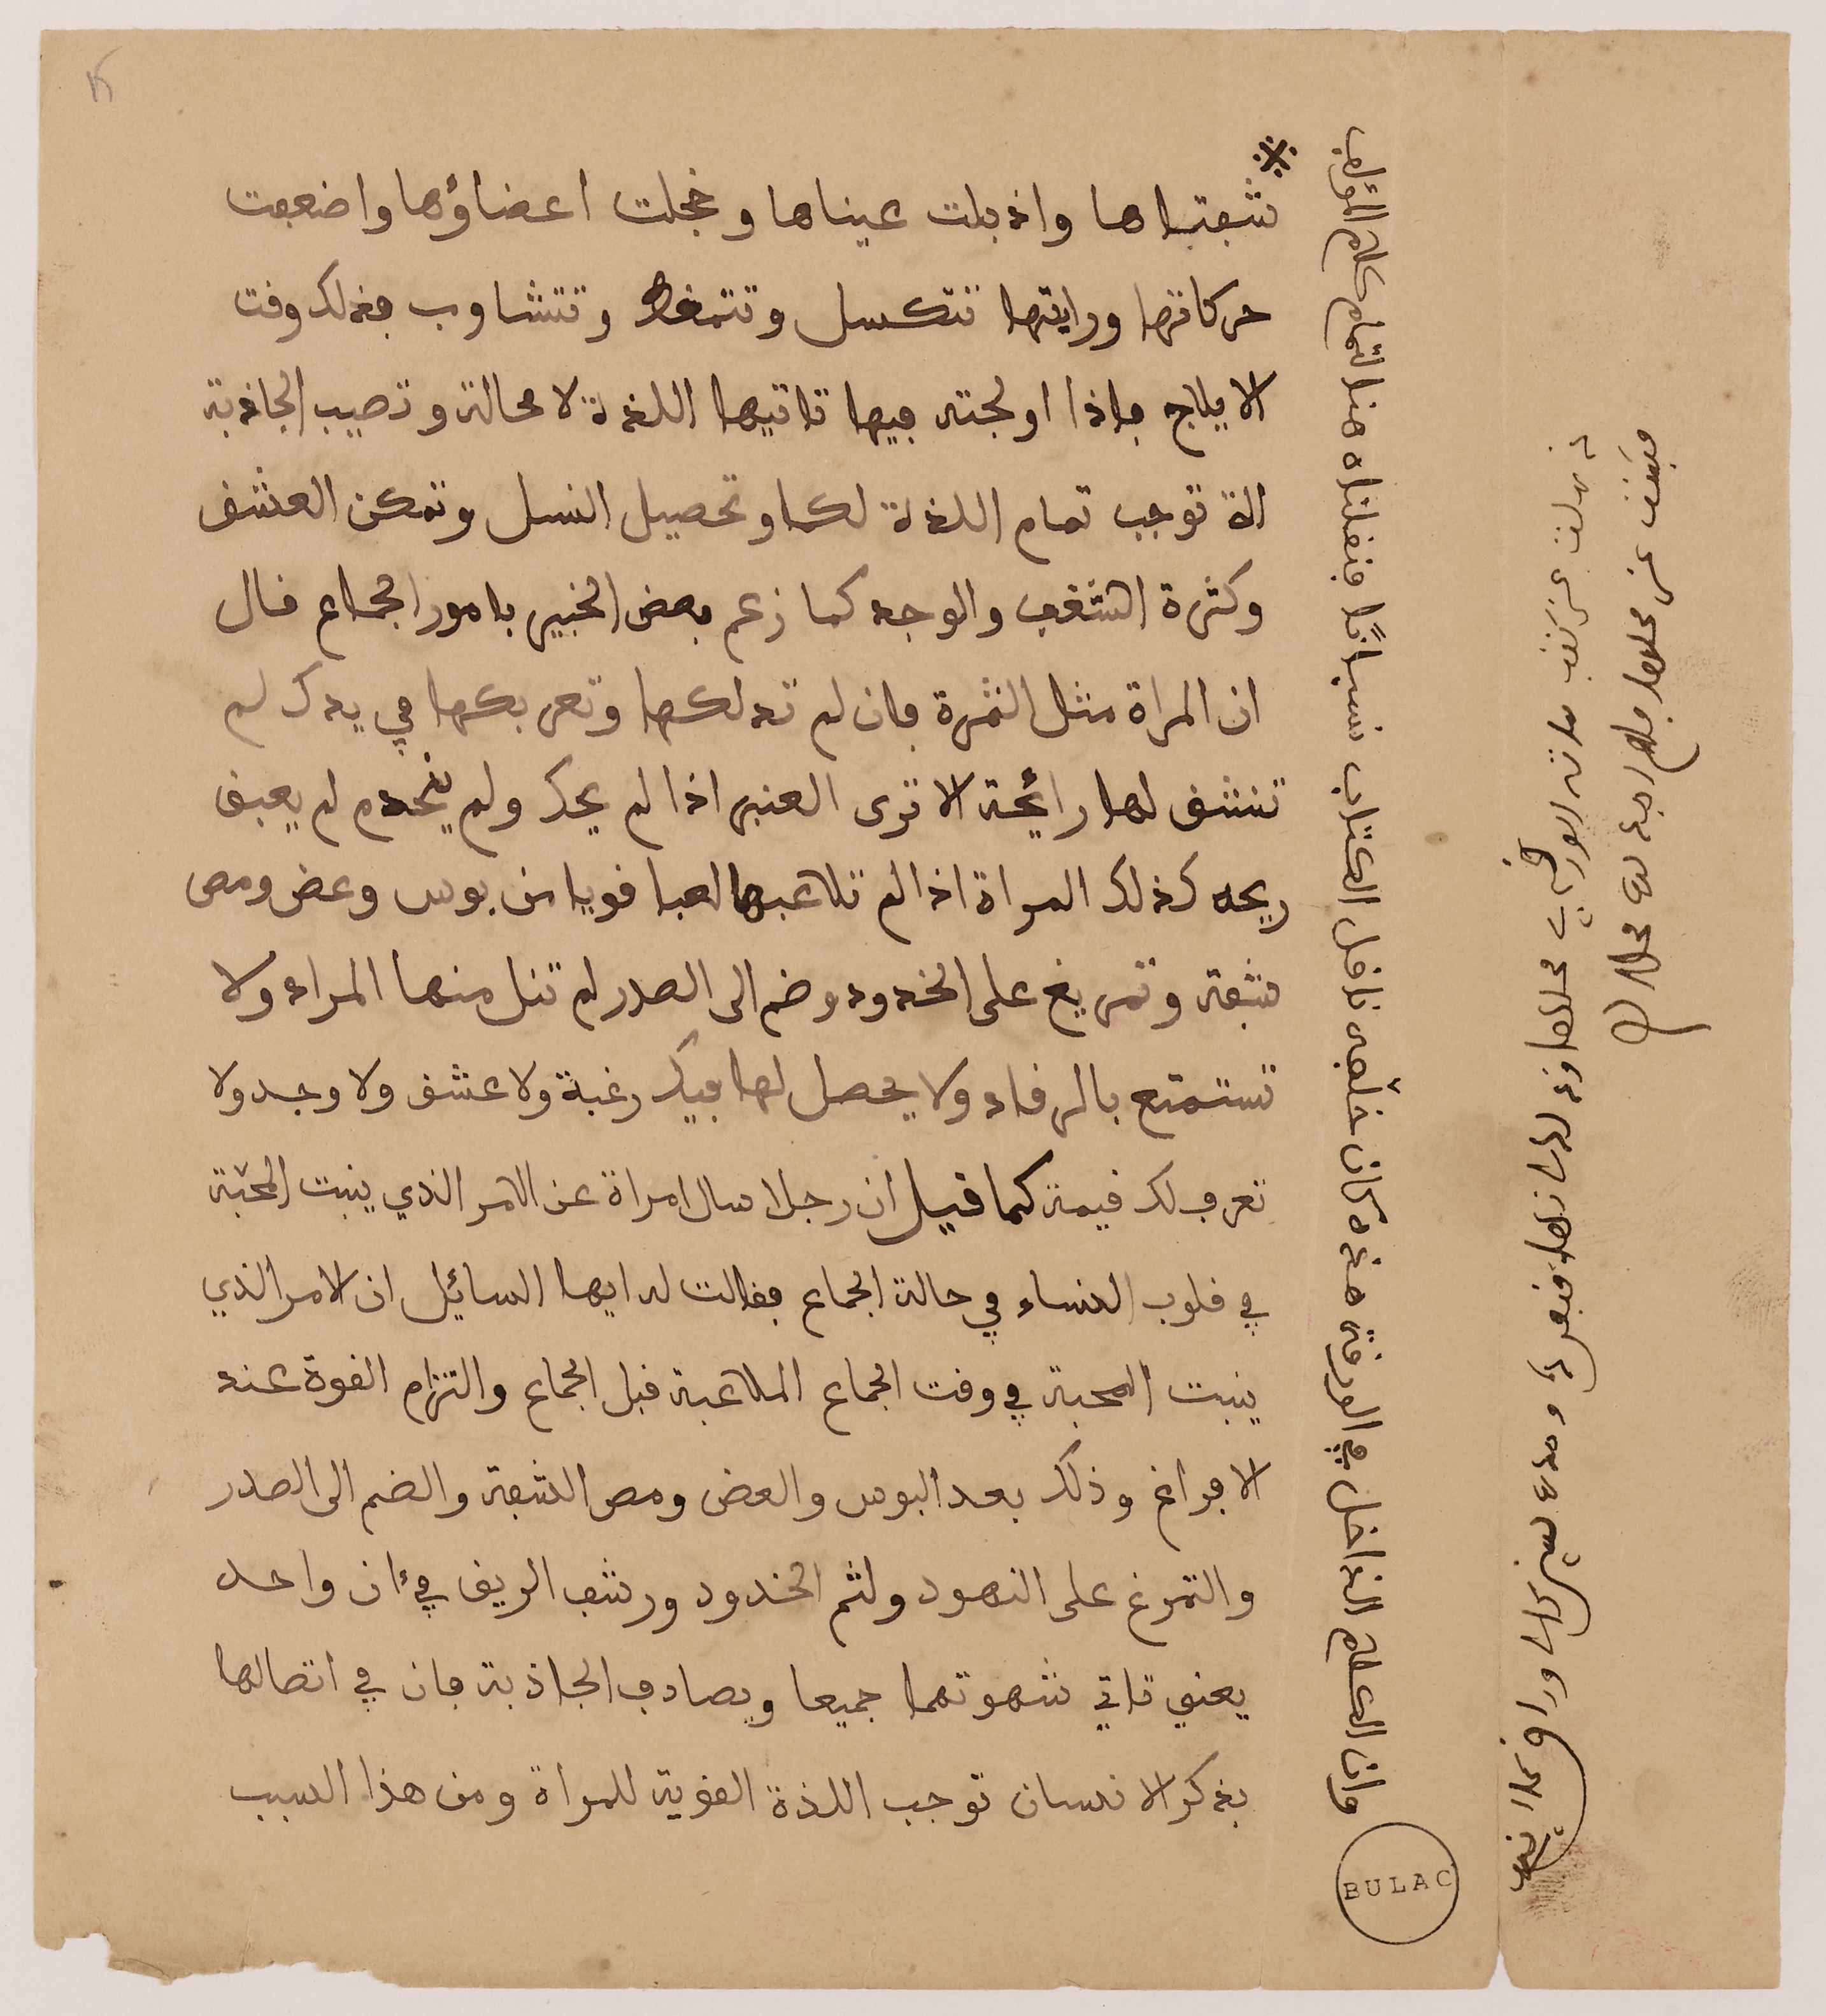 شفتاها واذبلت عيناها وخجلت اعضاؤها واضعفت
حركاتها ورايتها تتكسل وتتمغط وتتشاوب فذلك وقت
الايلاج فاذا اولجته فيها تاتيها اللذة لا محالة وتصيب الجاذبة
الة توجب تمام اللذة لكما وتحصيل النسل وتمكن العشق
وكثرة الشغف والوجد كما زعم بعض الخبير بامور الجماع قال
ان المراة مثل الثمرة فان لم تدلكها وتعربكها في يدك لم
تنشق لها رائحة الا ترى العنبر اذا لم يحك ولم يخدم لم يعبق
ريحه كذلك المراة اذا لم تلاعبها لعبا قويا من بوس وعض ومص
شفة وتمريغ على الخدود وضم الى الصدر لم تنل منها المراد ولا
تستمتع بالرقاد ولا يحصل لها فيك رغبة ولا عشق ولا وجد ولا
تعرف لك قيمة كما قيل ان رجلا سال امراة عن الامر الذي ينبت المحبة
في قلوب النساء في حالة الجماع فقالت له ايها السائل ان الامر الذي
ينبت المحبة في وقت الجماع الملاعبة قبل الجماع والتزام القوة عند
الافراغ وذلك بعد البوس والعض ومص الشفة والضم الى الصدر
والتمرغ على النهود ولثم الخدود ورشف الريق في ءان واحد
يعني تاتي شهوتهما جميعا ويصادف الجاذبة فان في اتصالها
بذكر الانسان توجب اللذة القوية للمراة ومن هذا السبب
وان الكلام الداخل في الورقة هذه كان خلفه ناقل الكتاب نسيانًا فنقلناه هنا لتمام كلام المؤلف
BULAC